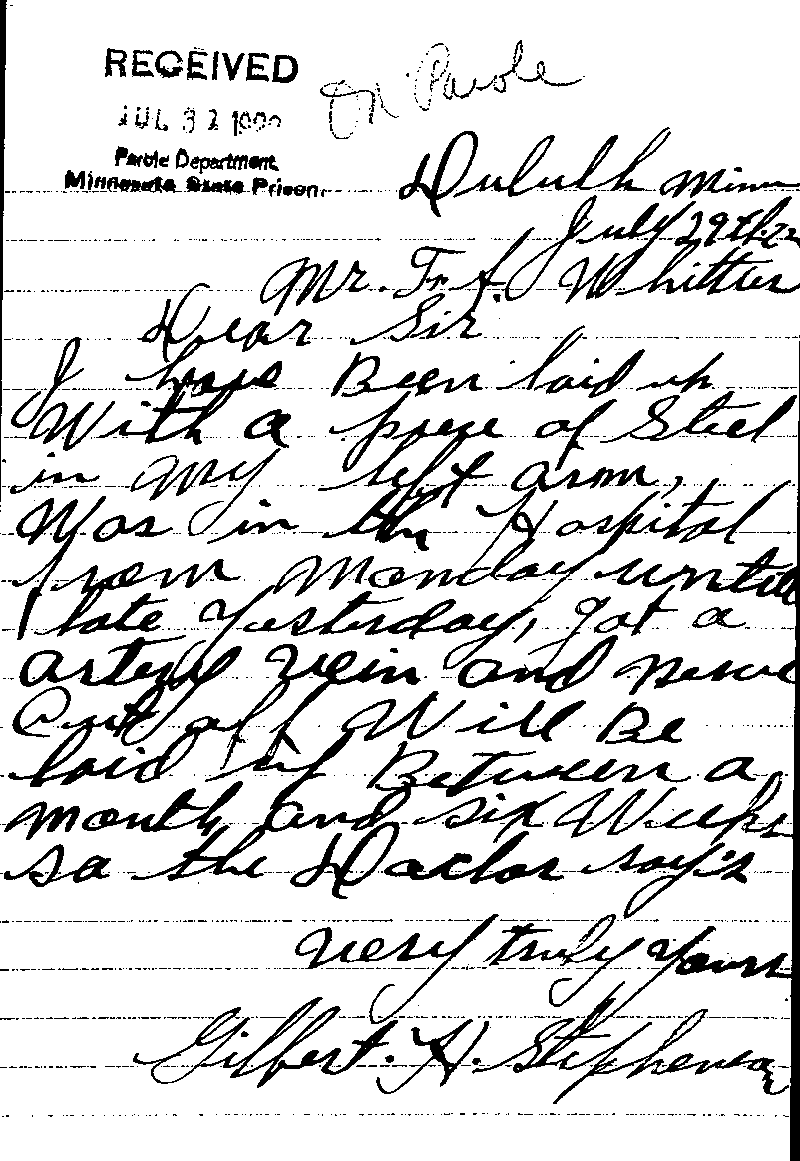 RECEIVED
On Parole
JUL 31
Parole Department,
Minnesota State Prison.
Duluth Minn
July 29th.22
Mr. Fr. A. Whittier
Dear Sir
I have Been laid up
With a piece of Steel
in my left arm,
Was in the Hospital
from Monday untill
late yesterday, got a
artery vein and nerve
Cut off Will Be
laid up Between a
month and six Weeks
so the Doctor say's
very truly yours
Gilbert. H. Stephenson